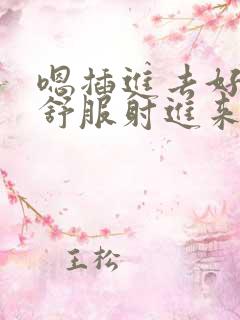 嗯插進去好
舒服射進来
王松